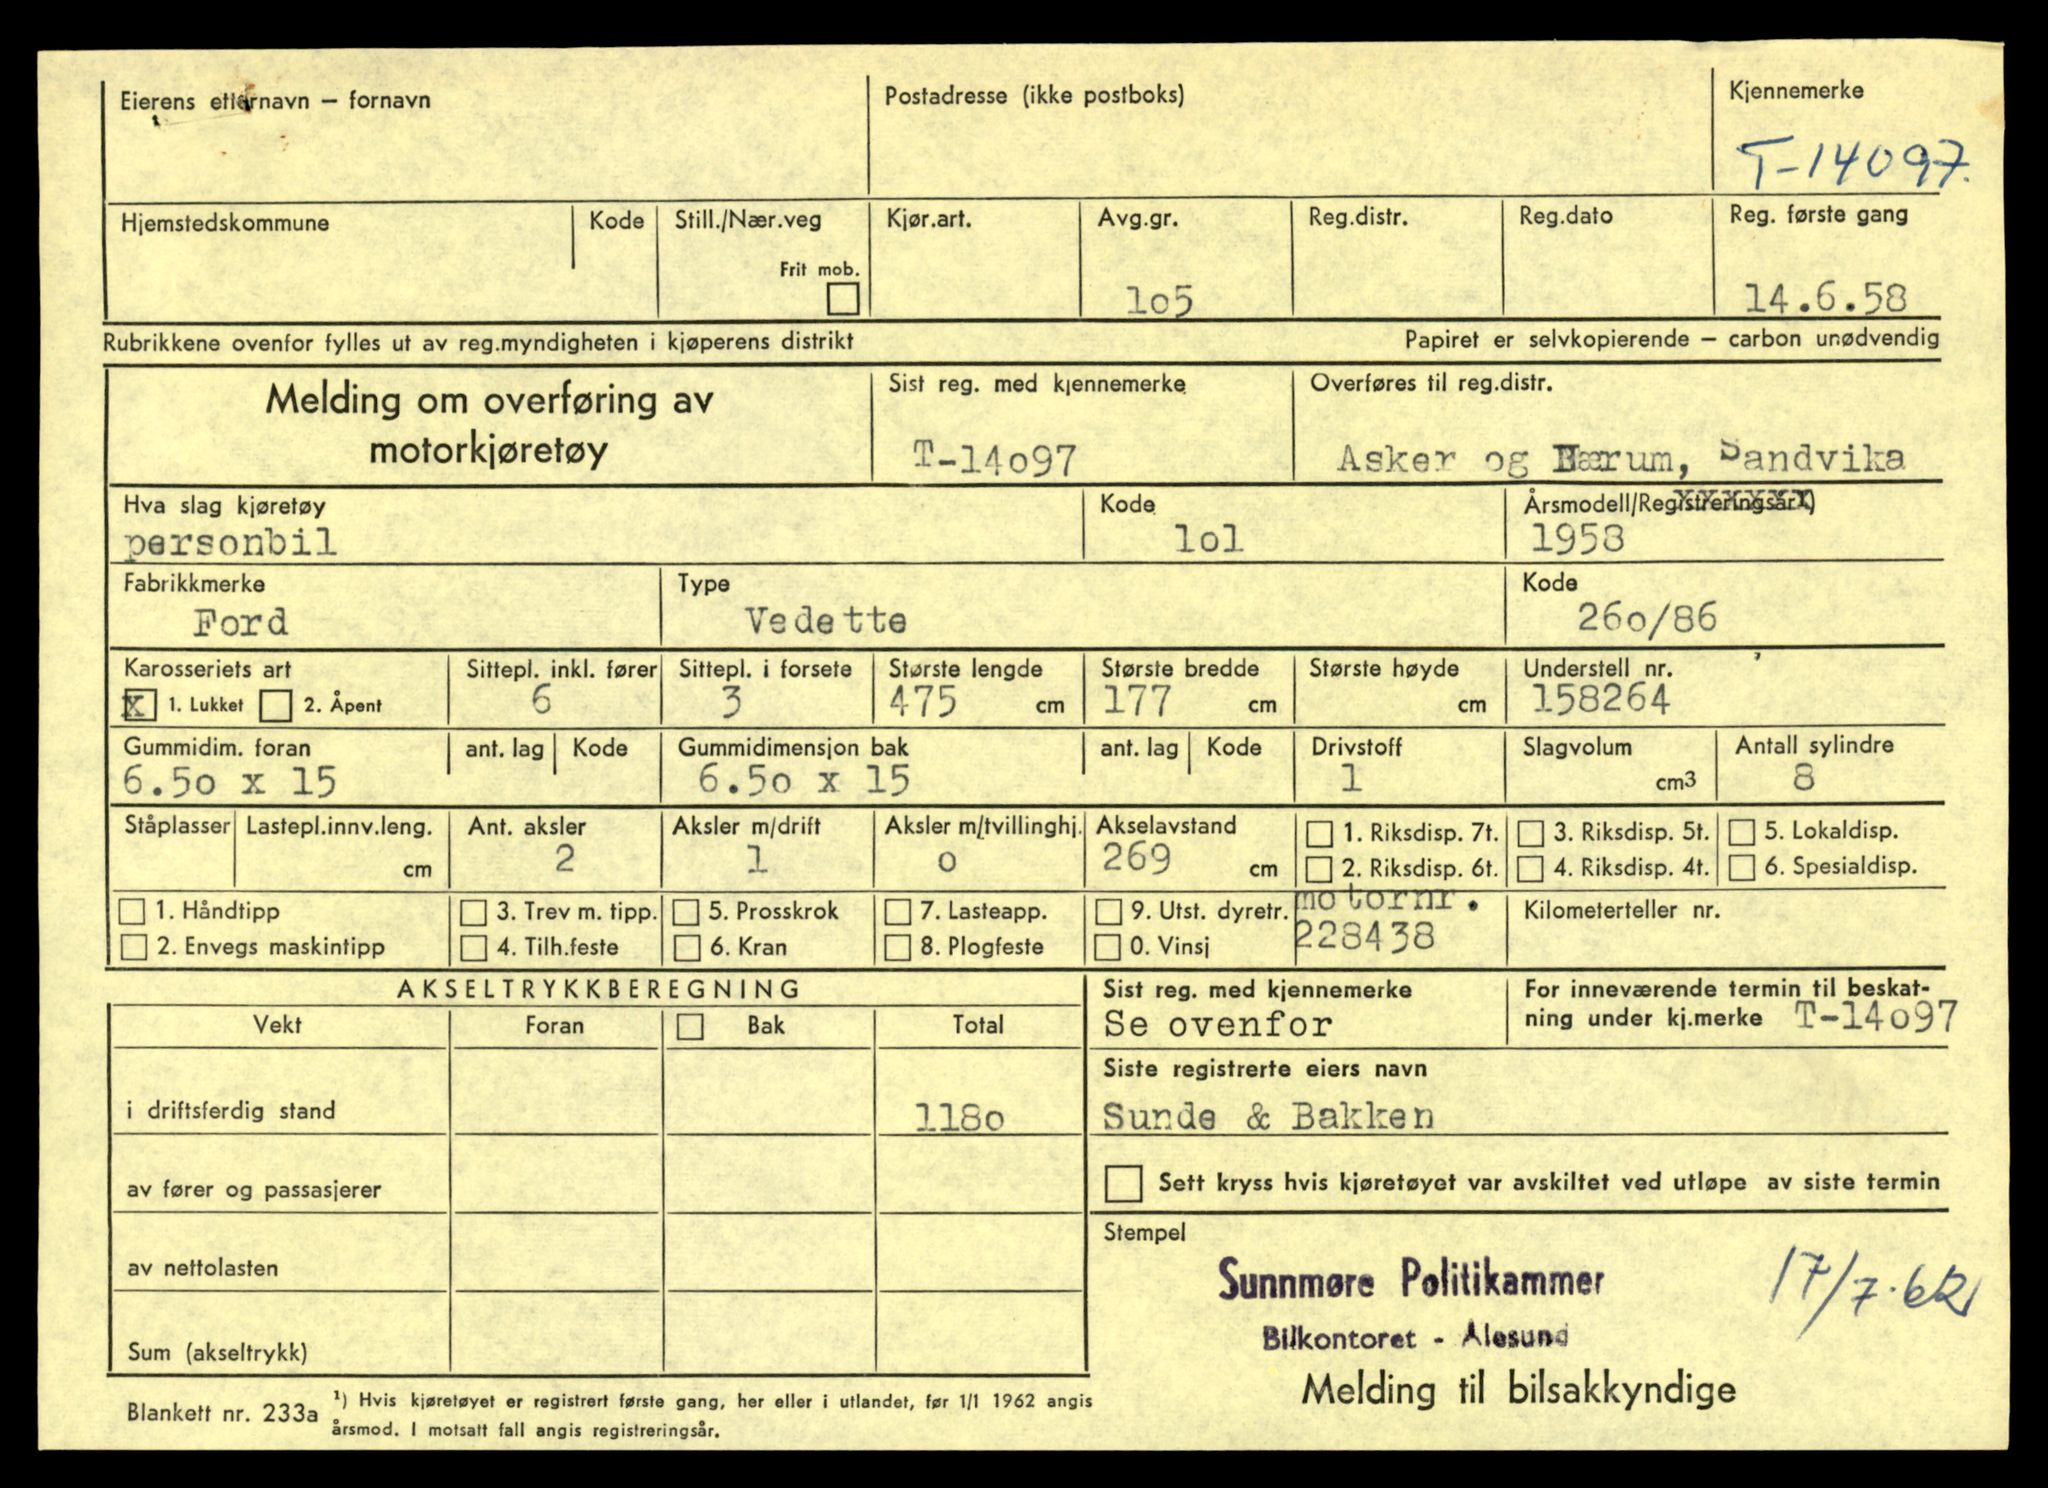 Eierens etternavn – fornavn
Postadresse (ikke postboks)
Kjennemerke
T-14097.
Hjemstedskommune
Kode
Still./Nær.veg
Frit mob.
Kjør.art.
Avg.gr.
1o5
Reg.distr.
Reg.dato
Reg. første gang
14.6.58
Rubrikkene ovenfor fylles ut av reg.myndigheten i kjøperens distrikt
Papiret er selvkopierende – carbon unødvendig
Melding om overføring av
motorkjøretøy
Sist reg. med kjennemerke
T-14o97
Overføres til reg.distr.
Asker og Bærum, Sandvika
Hva slag kjøretøy
personbil
Kode
1o1
Årsmodell/Registreringsår1)
1958
Fabrikkmerke
Ford
Type
Vedette
Kode
26o/86
Karosseriets art
x 1. Lukket 2. Åpent
Sittepl. inkl. fører
6
Sittepl. i forsete
3
Største lengde
475 cm
Største bredde
177 cm
Største høyde
cm
Understell nr.
158264
Gummidim. foran
6.5o x 15
ant. lag
Kode
Gummidimensjon bak
6.5o x 15
ant. lag
Kode
Drivstoff
1
Slagvolum
cm3
Antall sylindre
8
Ståplasser
Lastepl.innv.leng.
cm
Ant. aksler
2
Aksler m/drift
1
Aksler m/tvillinghj.
o
Akselavstand
269 cm
1. Riksdisp. 7t.
2. Riksdisp. 6t.
3. Riksdisp. 5t.
4. Riksdisp. 4t.
5. Lokaldisp.
6. Spesialdisp.
1. Håndtipp
2. Envegs maskintipp
3. Trev m. tipp.
4. Tilh.feste
5. Prosskrok
6. Kran
7. Lasteapp.
8. Plogfeste
9. Utst. dyretr.
0. Vinsj
motornr.
228438
Kilometerteller nr.
AKSELTRYKKBEREGNING
Vekt
Foran
Bak
Total
i driftsferdig stand
118o
av fører og passasjerer
av nettolasten
Sum (akseltrykk)
Sist reg. med kjennemerke
Se ovenfor
For inneværende termin til beskat-
ning under kj.merke T-14o97
Siste registrerte eiers navn
Sunde & Bakken
Sett kryss hvis kjøretøyet var avskiltet ved utløpe av siste termin
Stempel
Sunnmøre Politikammer
Bilkontoret - Ålesund
17/7.62
Melding til bilsakkyndige
Blankett nr. 233a
1) Hvis kjøretøyet er registrert første gang, her eller i utlandet, før 1/1 1962 angis
årsmod. I motsatt fall angis registreringsår.